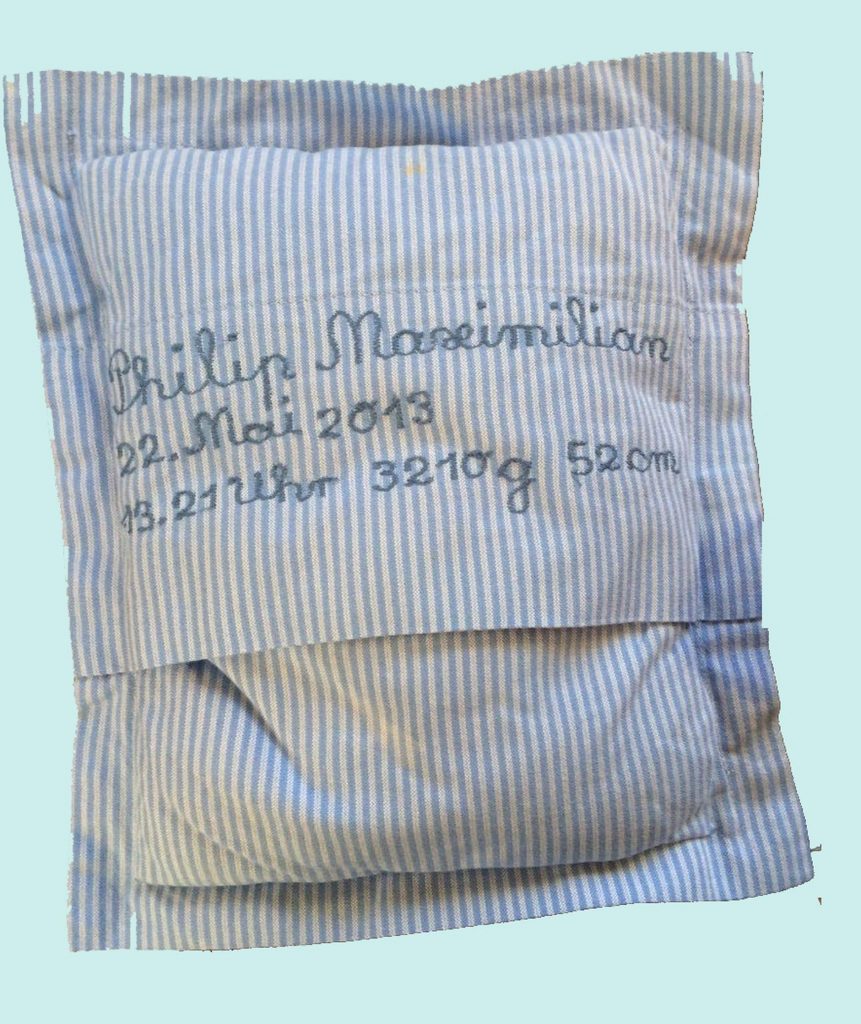 Philip Maximilian
22. Mai 2013
13.21 Uhr 3210g 52cm